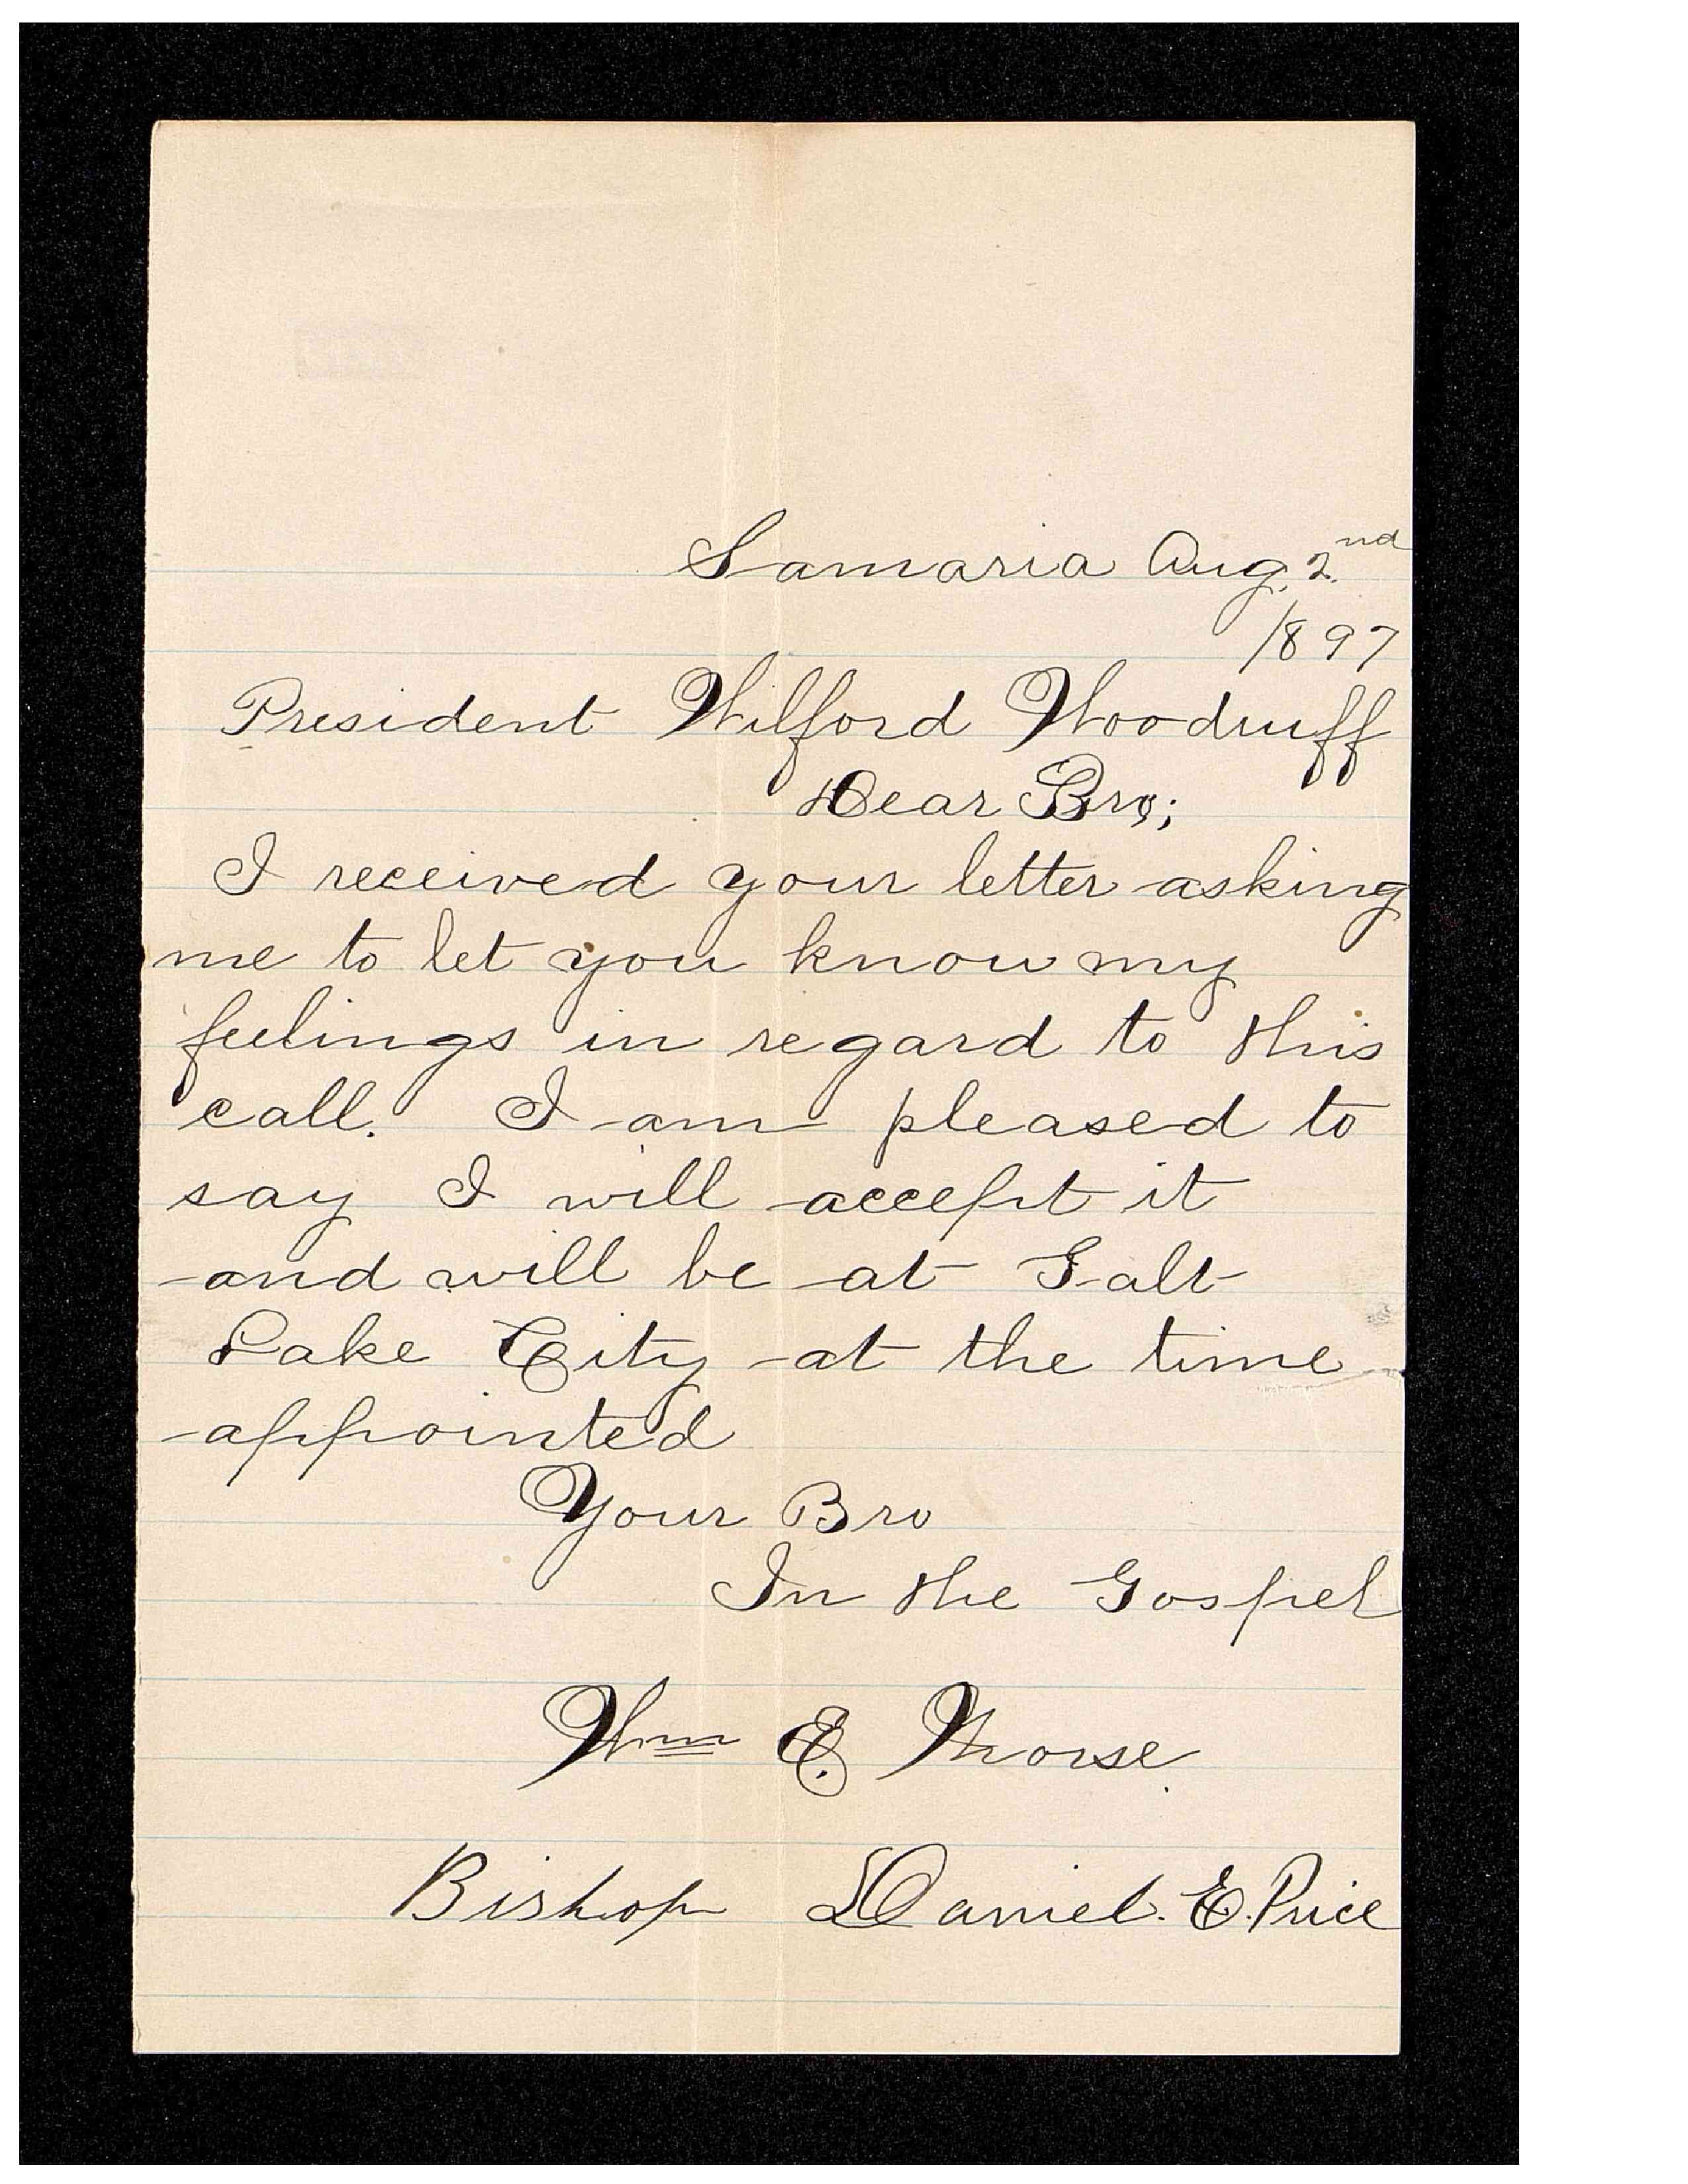 Samaria Aug. 2nd
1897
President Wilford Woodruff
Dear Bro;
I received your letter asking
me to let you know my
feelings in regard to this
call. I am pleased to
say I will accept it
and will be at Salt
Lake City at the time
appointed
Your Bro
In the Gospel
Wm E. Morse
Bishop Daniel. E. Price